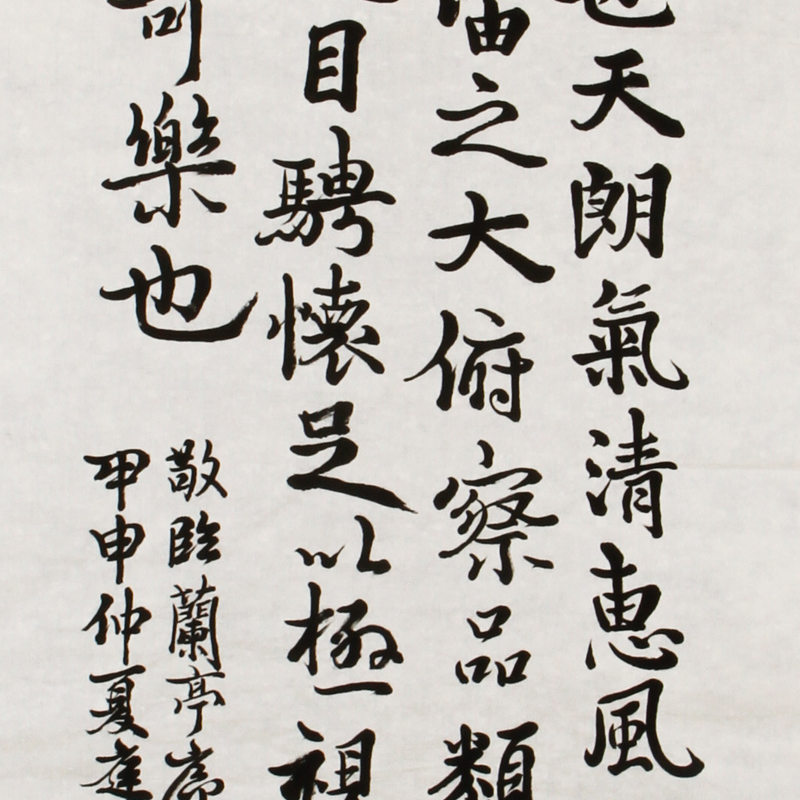 也天朗氣清惠風
宙之大俯察品類
目騁懷足以極視
可樂也
敬臨蘭亭
甲申仲夏